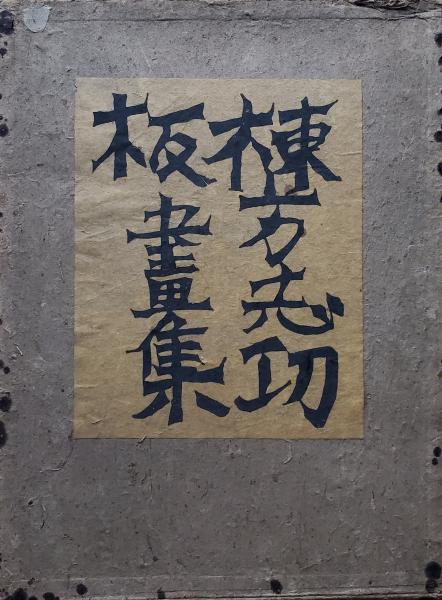 棟方志功
板畫集